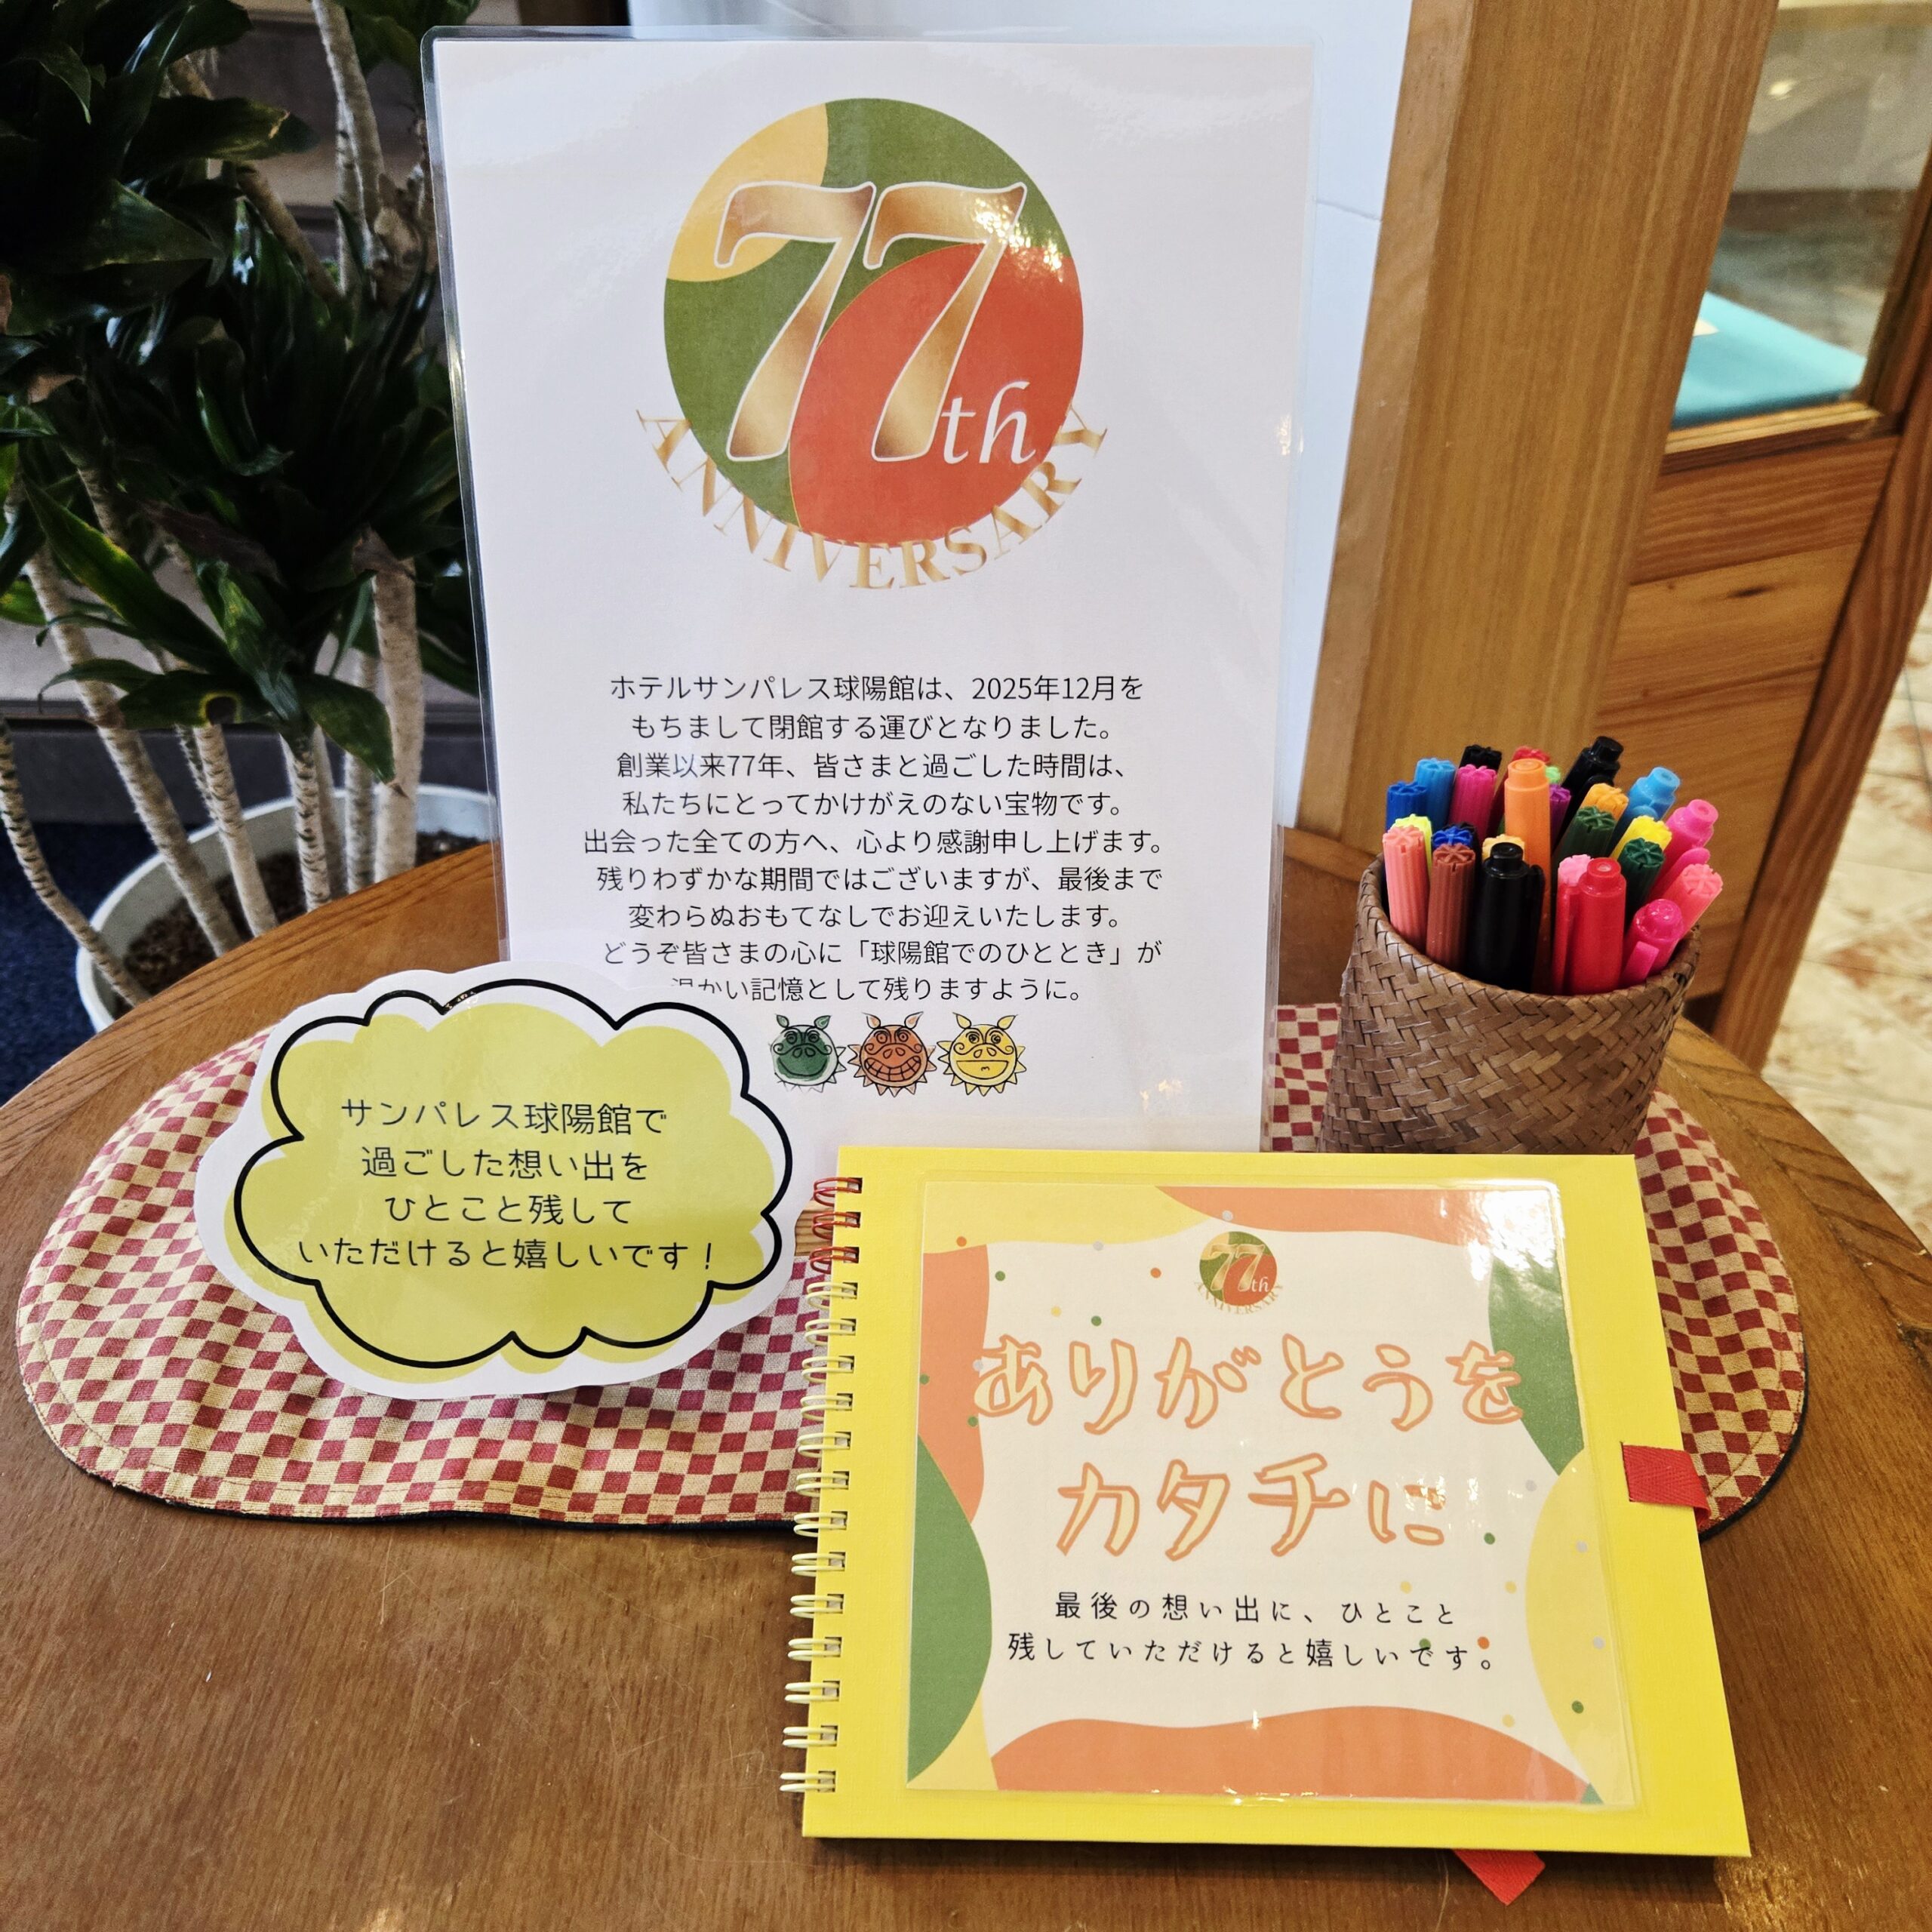 77th
ANNIVERSARY
ホテルサンパレス球陽館は、2025年12月を
もちまして閉館する運びとなりました。
創業以来77年、皆さまと過ごした時間は、
私たちにとってかけがえのない宝物です。
出会った全ての方へ、心より感謝申し上げます。
残りわずかな期間ではございますが、最後まで
変わらぬおもてなしでお迎えいたします。
どうぞ皆さまの心に「球陽館でのひととき」が
温かい記憶として残りますように。
サンパレス球陽館で
過ごした想い出を
ひとこと残して
いただけると嬉しいです！
77th
ANNIVERSARY
ありがとうを
カタチに
最後の想い出に、ひとこと
残していただけると嬉しいです。